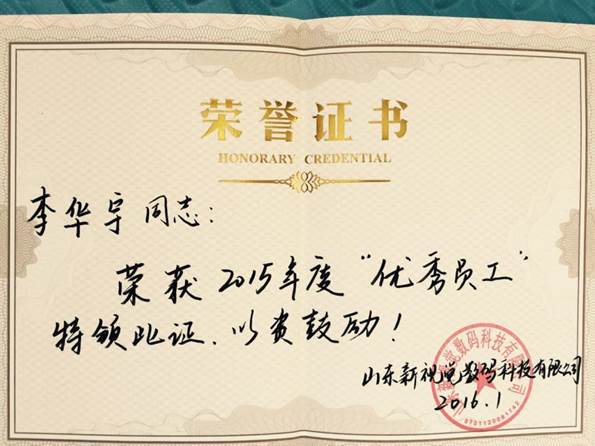 荣誉证书
HONORARY CREDENTIAL
李华宇同志:
荣获2015年度“优秀员工”
特领此证.以资鼓励!
山东新视觉数码科技有限公司
2016.1